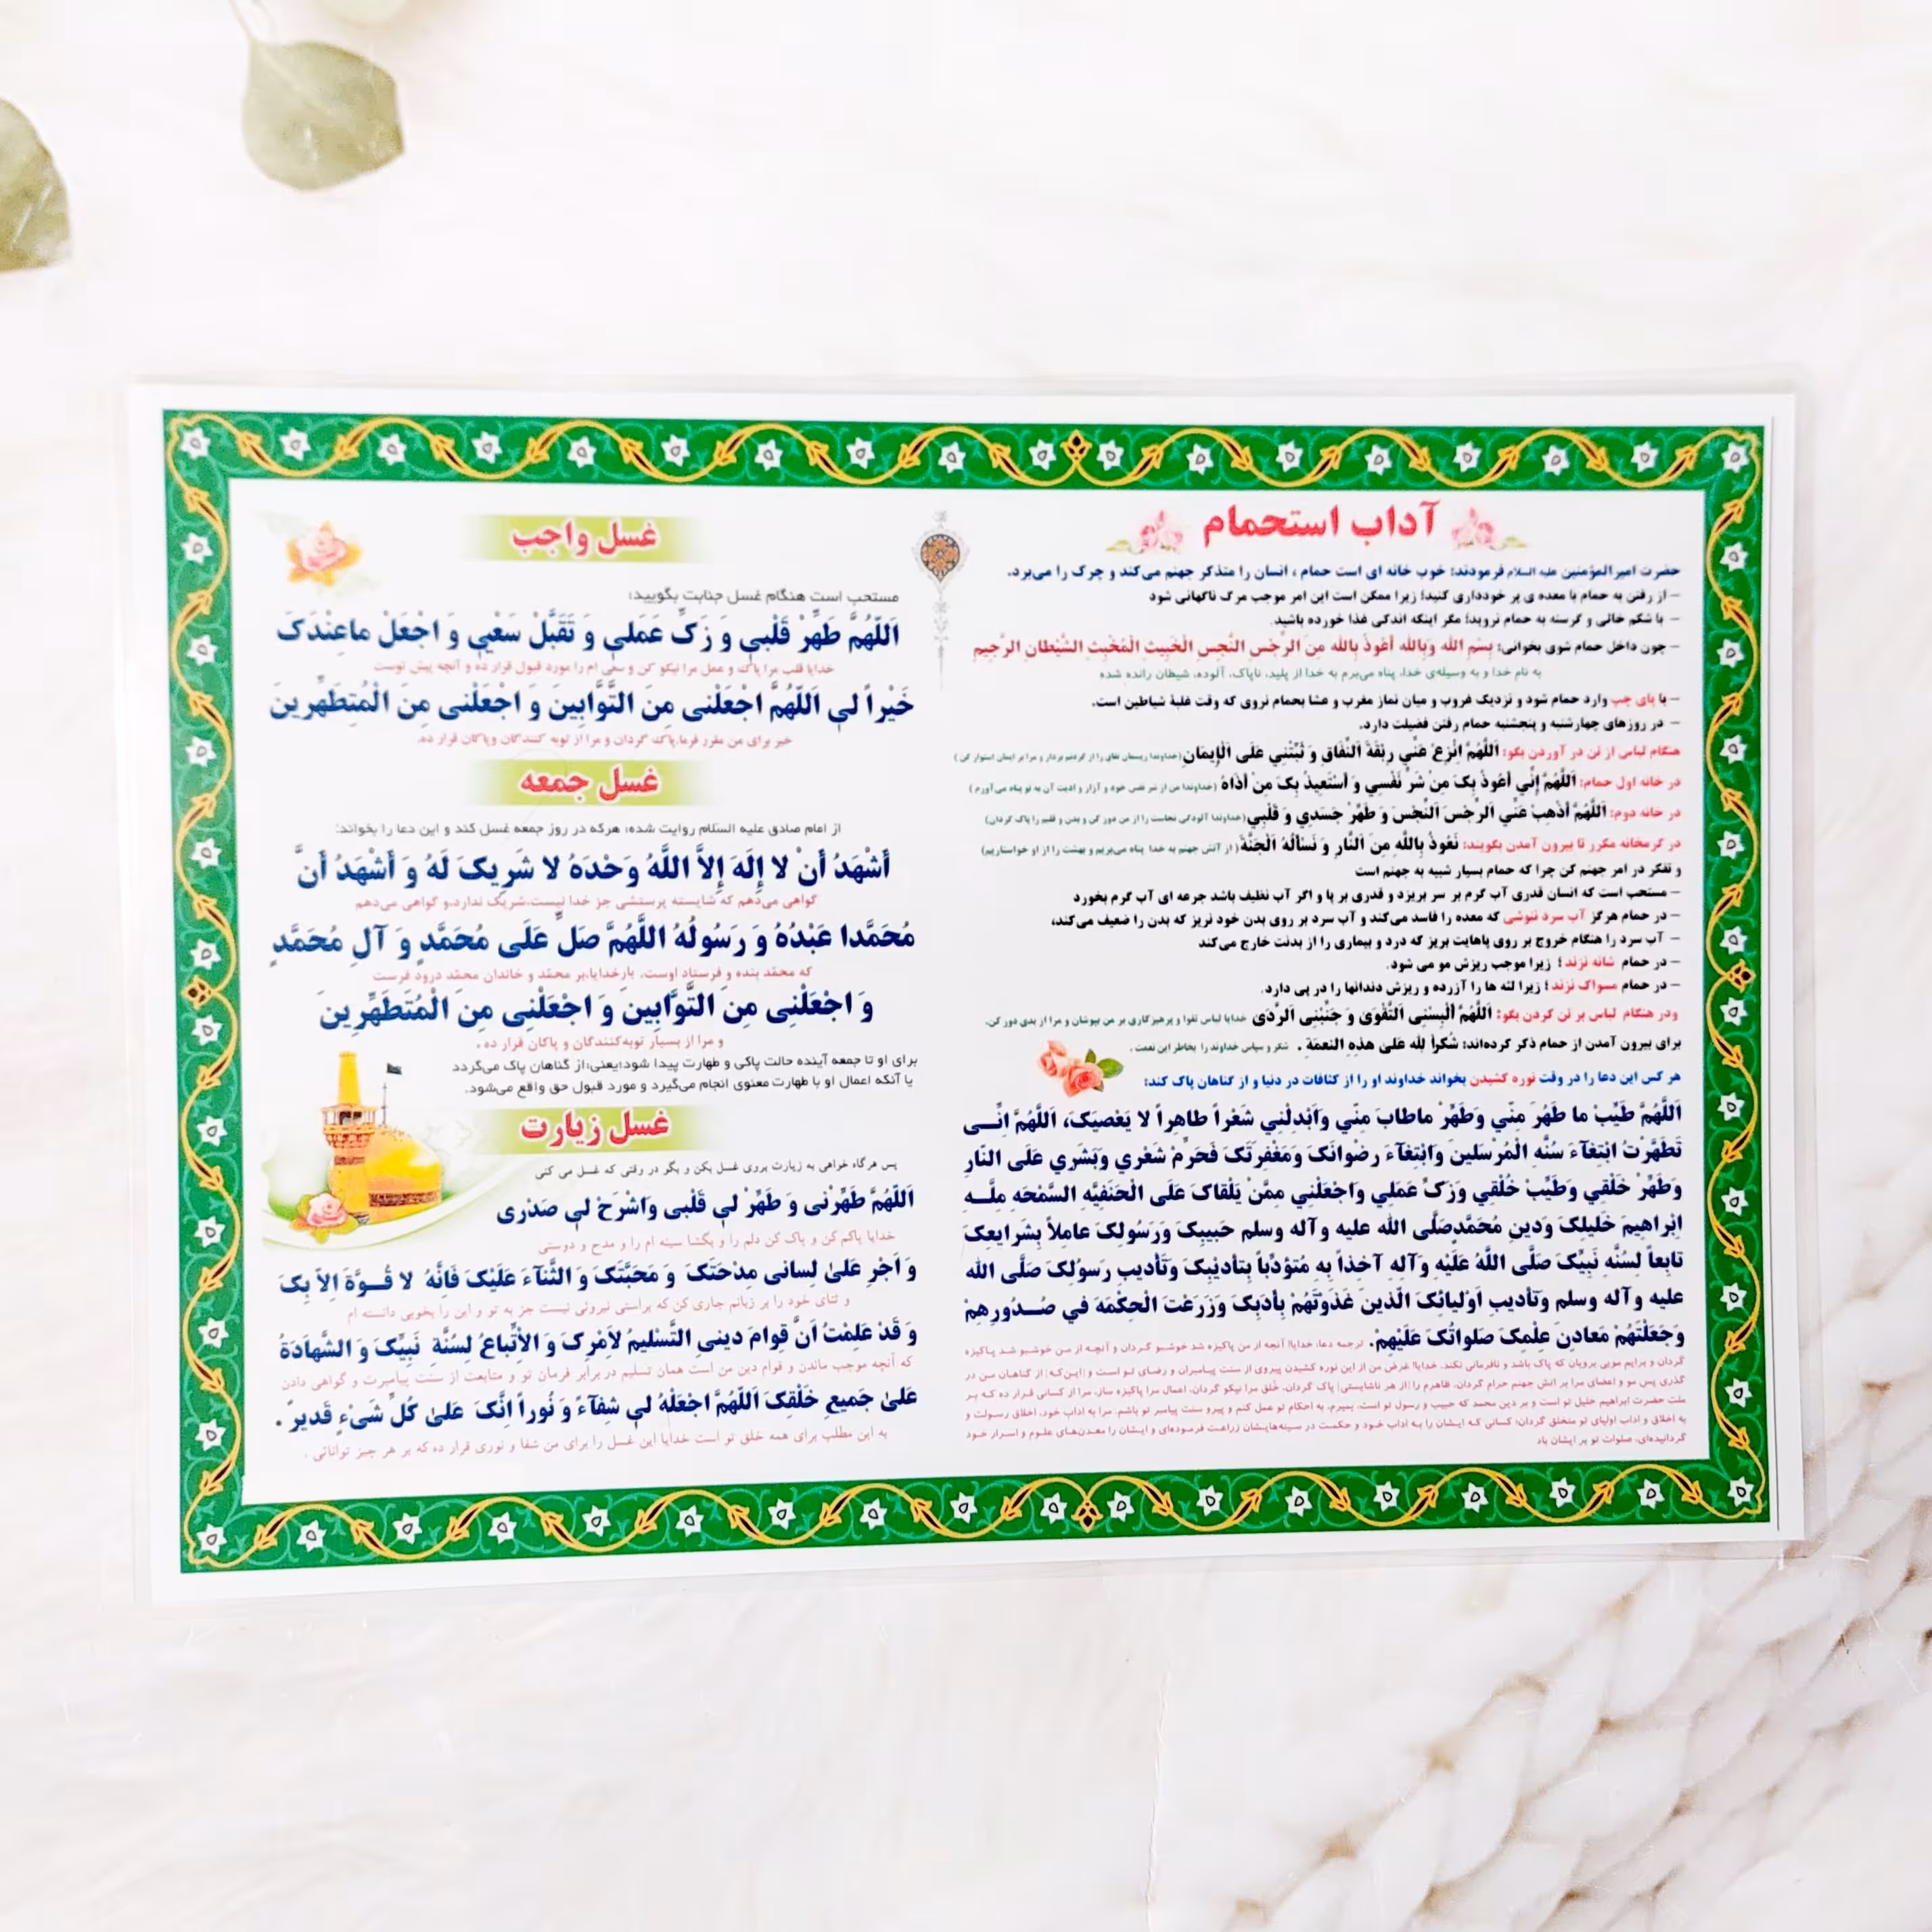 آداب استحمام
حضرت امیرالمؤمنین علیه السلام فرمودند؛ خوب خانه ای است حمام ، انسان را متذکر جهنم می‌کند و چرک را می‌برد.
– از رفتن به حمام با معده ی پر خودداری کنید؛ زیرا ممکن است این امر موجب مرگ ناگهانی شود
– با شکم خالی و گرسنه به حمام نروید؛ مگر اینکه اندکی غذا خورده باشید.
– چون داخل حمام شوی بخوانی: بِسْمِ اللّه وَبِاللّه أعُوذُ بِاللّه مِنَ الرِّجْسِ النَّجِسِ الْخَبیثِ الْمُخْبِثِ الشَّیْطانِ الرَّجیمِ
به نام خدا و به وسیله‌ی خدا، پناه می‌برم به خدا از پلید، ناپاک، آلوده، شیطان رانده شده
– با پای چپ وارد حمام شود و نزدیک غروب و میان نماز مغرب و عشا بحمام نروی که وقت غلبهٔ شیاطین است.
– در روزهای چهارشنبه و پنجشنبه حمام رفتن فضیلت دارد.
هنگام لباس از تن در آوردن بگو: اَللّهُمَّ انْزِعْ عَنِّي رِبْقَةَ النِّفَاقِ وَ ثَبِّتْنِي عَلَى الْإِيمَانِ (خداوندا ریسمان نفاق را از گردنم بردار و مرا بر ایمان استوار کن )
در خانه اول حمام: اَللّهُمَّ إِنِّي أَعُوذُ بِکَ مِنْ شَرِّ نَفْسِي وَ أَسْتَعِيذُ بِکَ مِنْ أَذَاهُ (خداوندا من از شر نفس خود و آزار و اذیت آن به تو پناه می‌آورم )
در خانه دوم: اَللّهُمَّ أَذْهِبْ عَنِّي الرِّجْسَ النِّجْسَ وَ طَهِّرْ جَسَدِي وَ قَلْبِي (خداوندا آلودگی نجاست را از من دور کن و بدن و قلبم را پاک گردان)
در گرمخانه مکرر تا بیرون آمدن بگویند: نَعُوذُ بِاللَّهِ مِنَ النَّارِ وَ نَسْأَلُهُ الْجَنَّةَ ( از آتش جهنم به خدا پناه می‌بریم و بهشت را از او خواستاریم)
و تفکر در امر جهنم کن چرا که حمام بسیار شبیه به جهنم است
– مستحب است که انسان قدری آب گرم بر سر بریزد و قدری بر پا و اگر آب نظیف باشد جرعه ای آب گرم بخورد
– در حمام هرگز آب سرد ننوشی که معده را فاسد می‌کند و آب سرد بر روی بدن خود نریز که بدن را ضعیف می‌کند؛
– آب سرد را هنگام خروج بر روی پاهایت بریز که درد و بیماری را از بدنت خارج می‌کند
– در حمام شانه نزند ؛ زیرا موجب ریزش مو می شود.
– در حمام مسواک نزند ؛ زیرا لثه ها را آزرده و ریزش دندانها را در پی دارد.
ودر هنگام لباس بر تن کردن بگو: اَللّهُمَّ اَلْبِسْنِی التَّقْوَی وَ جَنِّبْنِی الرَّدَی خدایا لباس تقوا و پرهیزکاری بر من بپوشان و مرا از بدی دور کن.
برای بیرون آمدن از حمام ذکر کرده‌اند: شُکراً لِلّه عَلیٰ هذِهِ النِعمَةِ . شکر و سپاس خداوند را بخاطر این نعمت .
هر کس این دعا را در وقت نوره کشیدن بخواند خداوند او را از کثافات در دنیا و از گناهان پاک کند:
اَللّهُمَّ طَيِّبْ ما طَهُرَ مِنّي وَطَهِّرْ ماطابَ مِنّي وَاَبْدِلْنِي شَعْراً طاهِراً لا يَعْصيکَ، اَللّهُمَّ اِنِّــی
تَطَهَّرْتُ ابْتِغآءَ سُنَّهِ الْمُرْسَلينَ وَابْتِغآءَ رِضْوانِکَ وَمَغْفِرَتِکَ فَحَرِّمْ شَعْري وَبَشَري عَلَى النّارِ
وَطَهِّرْ خَلْقي وَطَيِّبْ خُلْقي وَزَکِّ عَمَلي وَاجْعَلْنِي مِمَّنْ يَلْقاکَ عَلَى الْحَنَفِيَّهِ السَّمْحَهِ مِلَّــهِ
اِبْراهيمَ خَليلِکَ وَدينِ مُحَمَّدٍصَلَّى اللّه عليه وآله وسلم حَبيبِکَ وَرَسُولِکَ عامِلاً بِشَرايِعِکَ
تابِعاً لِسُنَّهِ نَبِيِّکَ صَلَّى اللَّهُ عَلَيْهِ وَآلِهِ آخِذاً بِهِ مُتَؤدِّباً بِتأديْبِکَ وَتَأْديبِ رَسوُلِکَ صَلَّى الله
عليه وآله وسلم وَتأديبِ اَوْلِيائِکَ الَّذينَ غَذَوْتَهُمْ بِأدَبِکَ وَزَرَعْتَ الْحِکْمَهَ في صُــدُورِهِمْ
وَجَعَلْتَهُمْ مَعادِنَ عِلْمِکَ صَلَواتُکَ عَلَيْهِمْ. ترجمه دعا: خدایا! آنچه از من پاکیزه شد خوشبو گردان و آنچه از من خوشبو شد پاکیزه
گردان و برایم مویی برویان که پاک باشد و نافرمانی نکند. خدایا! غرض من از این نوره کشیدن پیروی از سنت پیامبران و رضای تو است و
ملت حضرت ابراهیم خلیل تو است و بر دین محمد که حبیب و رسول تو است،
گردانیده‌ای. صلوات تو بر ایشان باد
غسل واجب
مستحب است هنگام غسل جنابت بگویید:
اَللّهُمَّ طَهِّرْ قَلْبي وَ زَکِّ عَمَلي وَ تَقَبَّلْ سَعْيِي وَ اجْعَلْ ماعِنْدَکَ
خدایا قلب مرا پاک و عمل مرا نیکو کن و سعی ام را مورد قبول قرار ده و آنچه پیش توست
خَيْراً لي اَللّهُمَّ اجْعَلْنی مِنَ التَّوَّابِینَ وَ اجْعَلْنی مِنَ الْمُتِطَهِّرینَ
خیر برای من مقرر فرما،پاک گردان و مرا از توبه کنندگان وپاکان قرار ده.
غسل جمعه
از امام صادق علیه السّلام روایت شده: هرکه در روز جمعه غسل کند و این دعا را بخواند:
أَشْهَدُ أَنْ لا إِلَهَ إِلاَّ اللَّهُ وَحْدَهُ لا شَرِیکَ لَهُ وَ أَشْهَدُ أَنَّ
گواهی می‌دهم که شایسته پرستشی جز خدا نیست،شریک ندارد،و گواهی می‌دهم
مُحَمَّدا عَبْدُهُ وَ رَسُولُهُ اللَّهُمَّ صَلِّ عَلَی مُحَمَّدٍ وَ آلِ مُحَمَّدٍ
که محمّد بنده و فرستاد اوست، بارخدایا،بر محمّد و خاندان محمّد درود فرست
وَ اجْعَلْنِی مِنَ التَّوَّابِینَ وَ اجْعَلْنِی مِنَ الْمُتَطَهِّرِینَ
و مرا از بسیار توبه‌کنندگان و پاکان قرار ده .
برای او تا جمعه آینده حالت پاکی و طهارت پیدا شود؛یعنی:از گناهان پاک می‌گردد
یا آنکه اعمال او با طهارت معنوی انجام می‌گیرد و مورد قبول حق واقع می‌شود.
غسل زیارت
پس هرگاه خواهی به زیارت بروی غسل بکن و بگر در رقتی که غسل می کنی
اَللّهُمَّ طَهِّرْنی وَ طَهِّرْ لي قَلْبی وَاشْرَحْ لي صَدْری
خدایا پاکم کن و پاک کن دلم را و بگشا سینه ام را و مدح و دوستی
وَ اَجْرِ عَلیٰ لِسانی مِدْحَتَکَ وَ مَحَبَّتَکَ وَ الثَّنآءَ عَلَیْکَ فَاِنَّهُ لا قُــوَّةَ اِلاّ بِکَ
و ثنای خود را بر زبانم جاری کن که براستی نیروئی نیست جز به تو و این را بخوبی دانسته ام
وَ قَدْ عَلِمْتُ اَنَّ قِوامَ دینی التَّسْلیمُ لِاَمْرِکَ وَ الْاِتِّباعُ لِسُنَّةِ نَبِیِّکَ وَ الشَّهادَةُ
که آنچه موجب ماندن و قوام دین من است همان تسلیم در برابر فرمان تو و متابعت از سنت پیامبرت و گواهی دادن
عَلیٰ جَمیعِ خَلْقِکَ اَللّهُمَّ اجْعَلْهُ لي شِفآءً وَ نُوراً اِنَّکَ عَلیٰ کُلِّ شَیْءٍ قَدیرٌ .
به این مطلب برای همه خلق تو است خدایا این غسل را برای من شفا و نوری قرار ده که بر هر چیز توانائی .